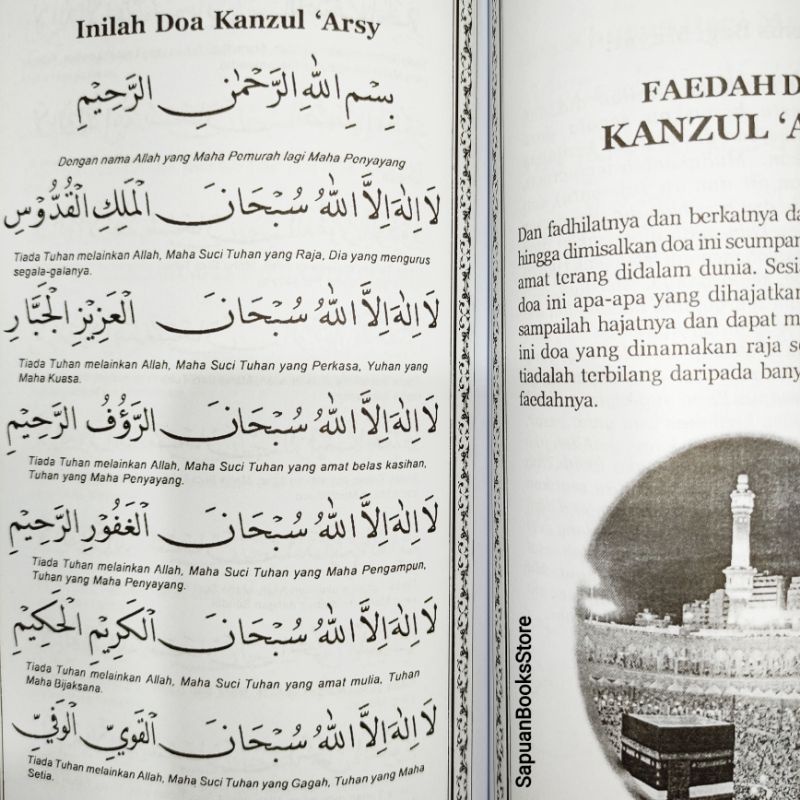 Inilah Doa Kanzul ‘Arsy
بِسْمِ اللهِ الرَّحْمٰنِ الرَّحِيْمِ
Dengan nama Allah yang Maha Pemurah lagi Maha Penyayang
لَا اِلٰهَ اِلَّا اللهُ سُبْحَانَ الْمَلِكِ الْقُدُّوْسِ
Tiada Tuhan melainkan Allah, Maha Suci Tuhan yang Raja, Dia yang mengurus
segala-galanya.
لَا اِلٰهَ اِلَّا اللهُ سُبْحَانَ الْعَزِيْزِ الْجَبَّارِ
Tiada Tuhan melainkan Allah, Maha Suci Tuhan yang Perkasa, Yuhan yang
Maha Kuasa.
لَا اِلٰهَ اِلَّا اللهُ سُبْحَانَ الرَّؤُفُ الرَّحِيْمِ
Tiada Tuhan melainkan Allah, Maha Suci Tuhan yang amat belas kasihan,
Tuhan yang Maha Penyayang.
لَا اِلٰهَ اِلَّا اللهُ سُبْحَانَ الْغَفُوْرِ الرَّحِيْمِ
Tiada Tuhan melainkan Allah, Maha Suci Tuhan yang Maha Pengampun,
Tuhan yang Maha Penyayang.
لَا اِلٰهَ اِلَّا اللهُ سُبْحَانَ الْكَرِيْمِ الْحَكِيْمِ
Tiada Tuhan melainkan Allah, Maha Suci Tuhan yang amat mulia, Tuhan
Maha Bijaksana.
لَا اِلٰهَ اِلَّا اللهُ سُبْحَانَ الْقَوِيِّ الْوَفِيِّ
Tiada Tuhan melainkan Allah, Maha Suci Tuhan yang Gagah, Tuhan yang Maha
Setia.
FAEDAH D
KANZUL ‘A
Dan fadhilatnya dan berkatnya da
hingga dimisalkan doa ini seumpan
amat terang didalam dunia. Sesia
doa ini apa-apa yang dihajatkan
sampailah hajatnya dan dapat m
ini doa yang dinamakan raja se
tiadalah terbilang daripada bany
faedahnya.
SapuanBooksStore